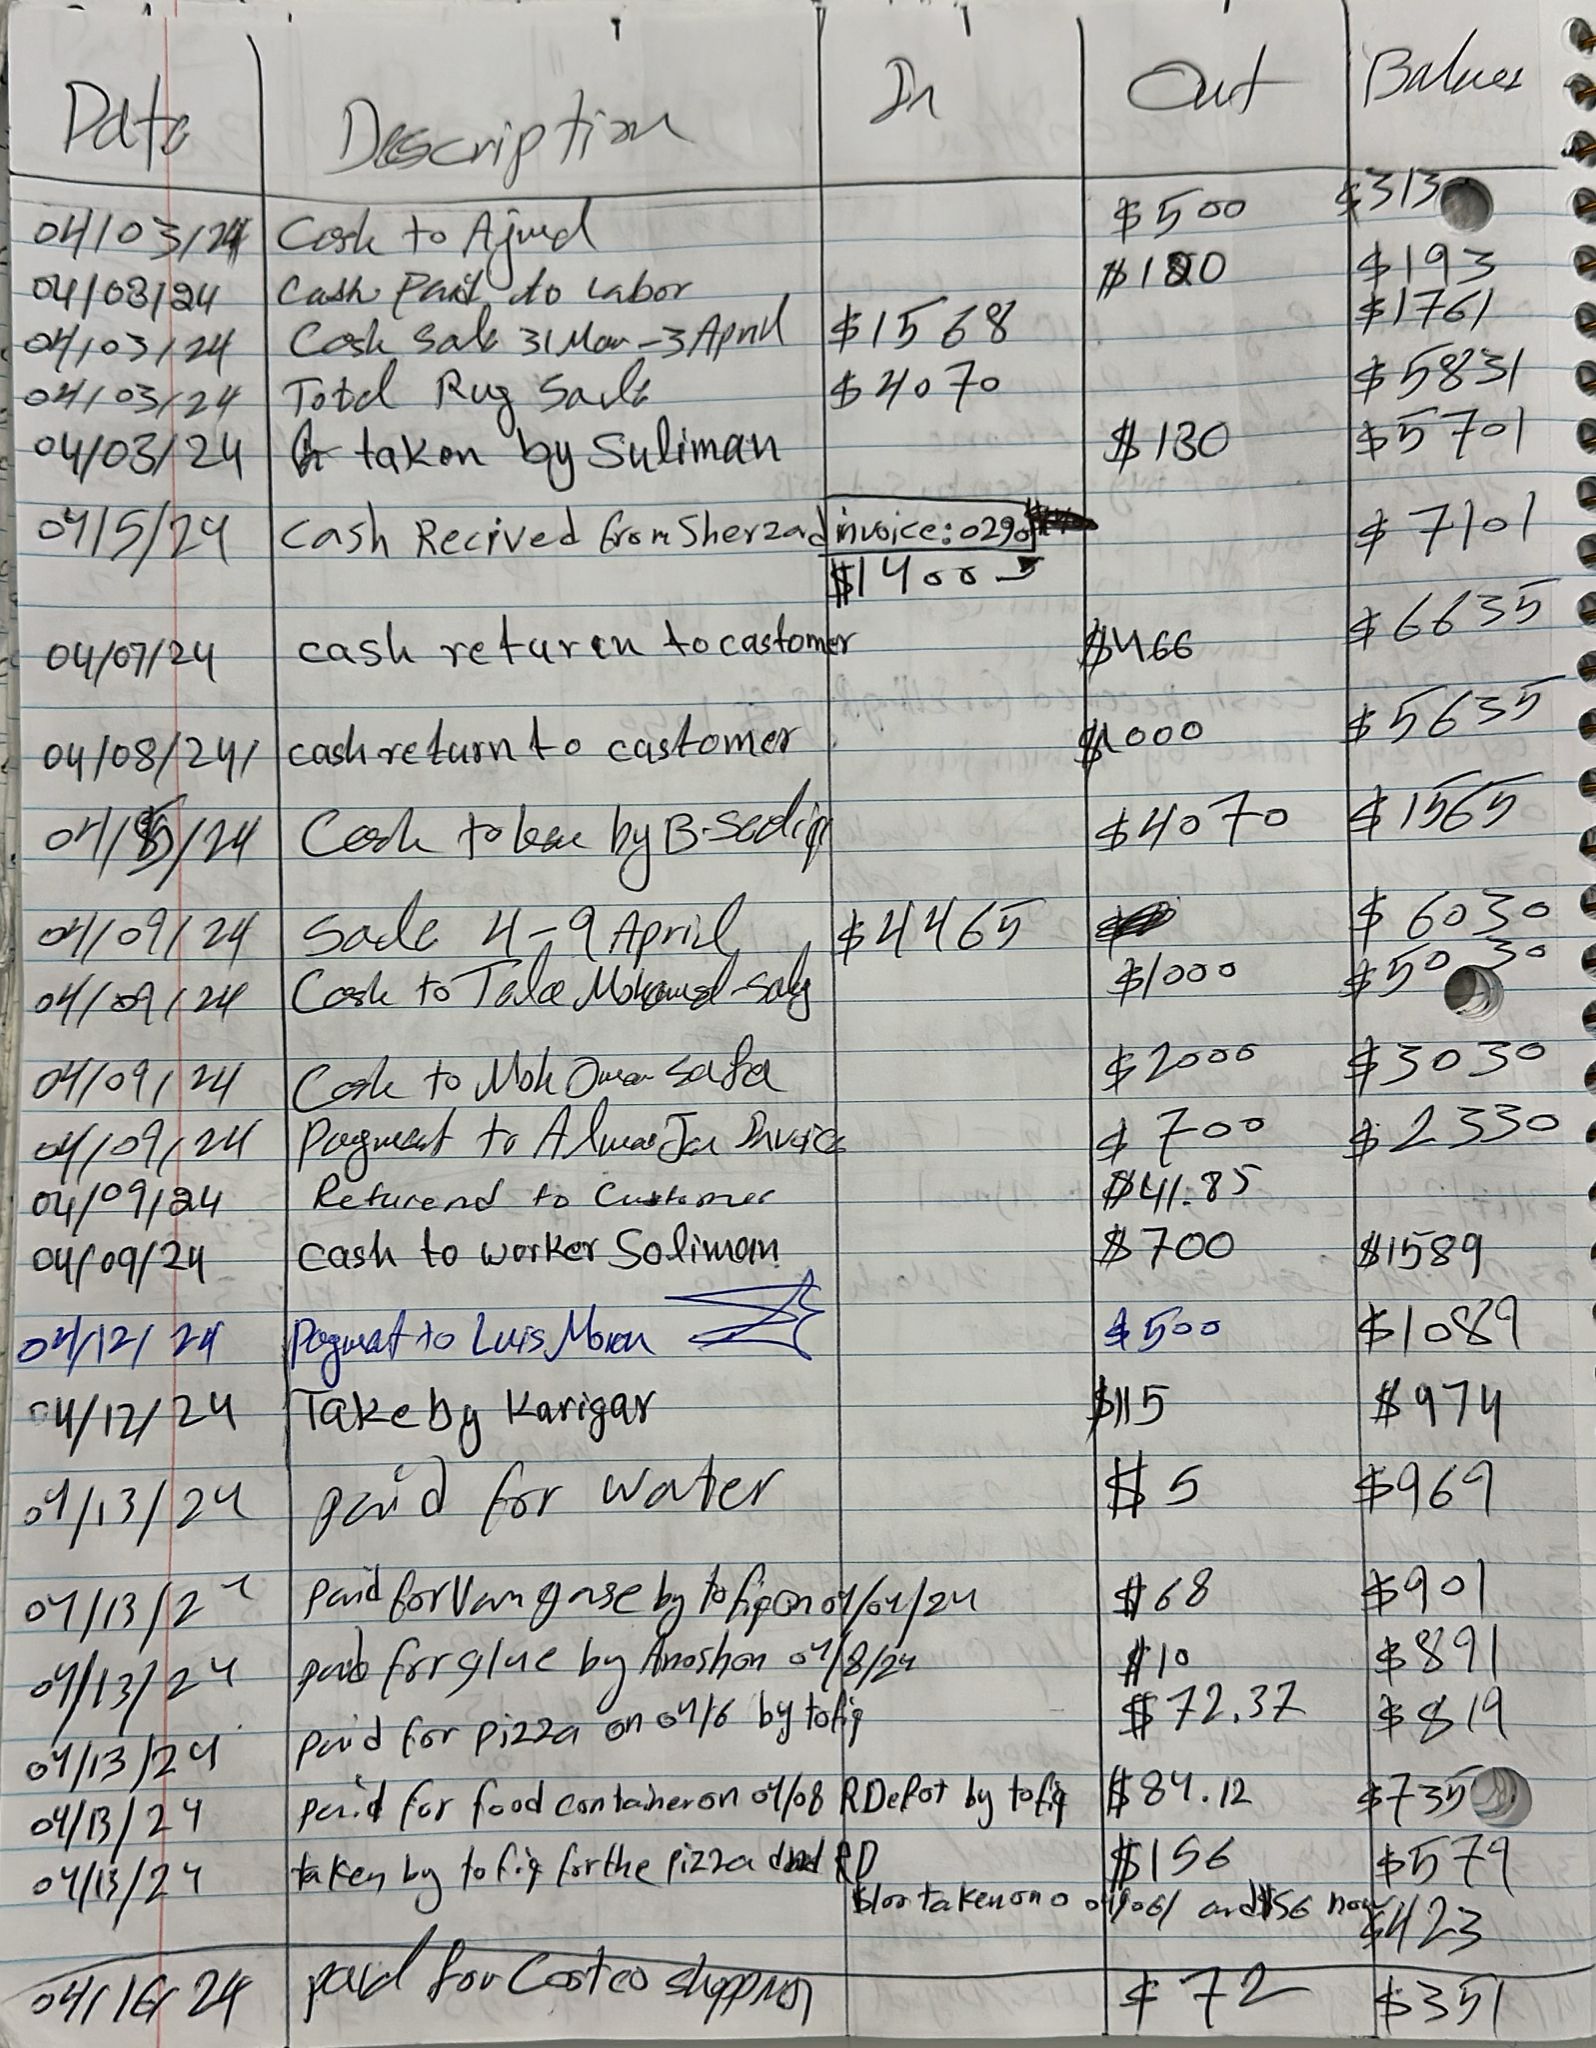 Date Description In Out Balnes
04/03/24 Cash to Ajmed $500 $313
04/03/24 Cash Paid to Labor $120 $193
04/03/24 Cash Sale 31 Mar-3 April $1568 $1761
04/03/24 Total Rug Sale $4070 $5831
04/03/24 taken by Suliman $130 $5701
04/5/24 Cash Recived from Sherzad invoice: 0290 $7101
$1400
04/07/24 cash returen to castomer $466 $6635
04/08/24 cash return to castomer $1000 $5635
04/8/24 Cash by B. $4070 $1565
04/09/24 Sale 4-9 April $4465 $6030
04/09/24 Cash to $1000 $5030
04/09/24 Cash to Moh Safa $2000 $3030
04/09/24 Payment to Invoice $700 $2330
04/09/24 Returend to Customer $41.85
04/09/24 cash to worker Soliman $700 $1589
04/12/24 Payment to Luis Moren $500 $1089
04/12/24 Take by Karigar $115 $974
04/13/24 paid for water $5 $969
04/13/24 paid for Van gase by tofiq on 04/04/24 $68 $901
04/13/24 paid for glue by Anosh on 04/8/24 $10 $891
04/13/24 paid for pizza on 04/6 by tofiq $72.37 $819
04/13/24 paid for food container on 04/08 RDepot by tofiq $84.12 $735
04/13/24 taken by tofiq for the pizza and RD $156 $579
$100 taken on 04/06/ and $56 now $423
04/16/24 paid for Costco shopping $72 $351